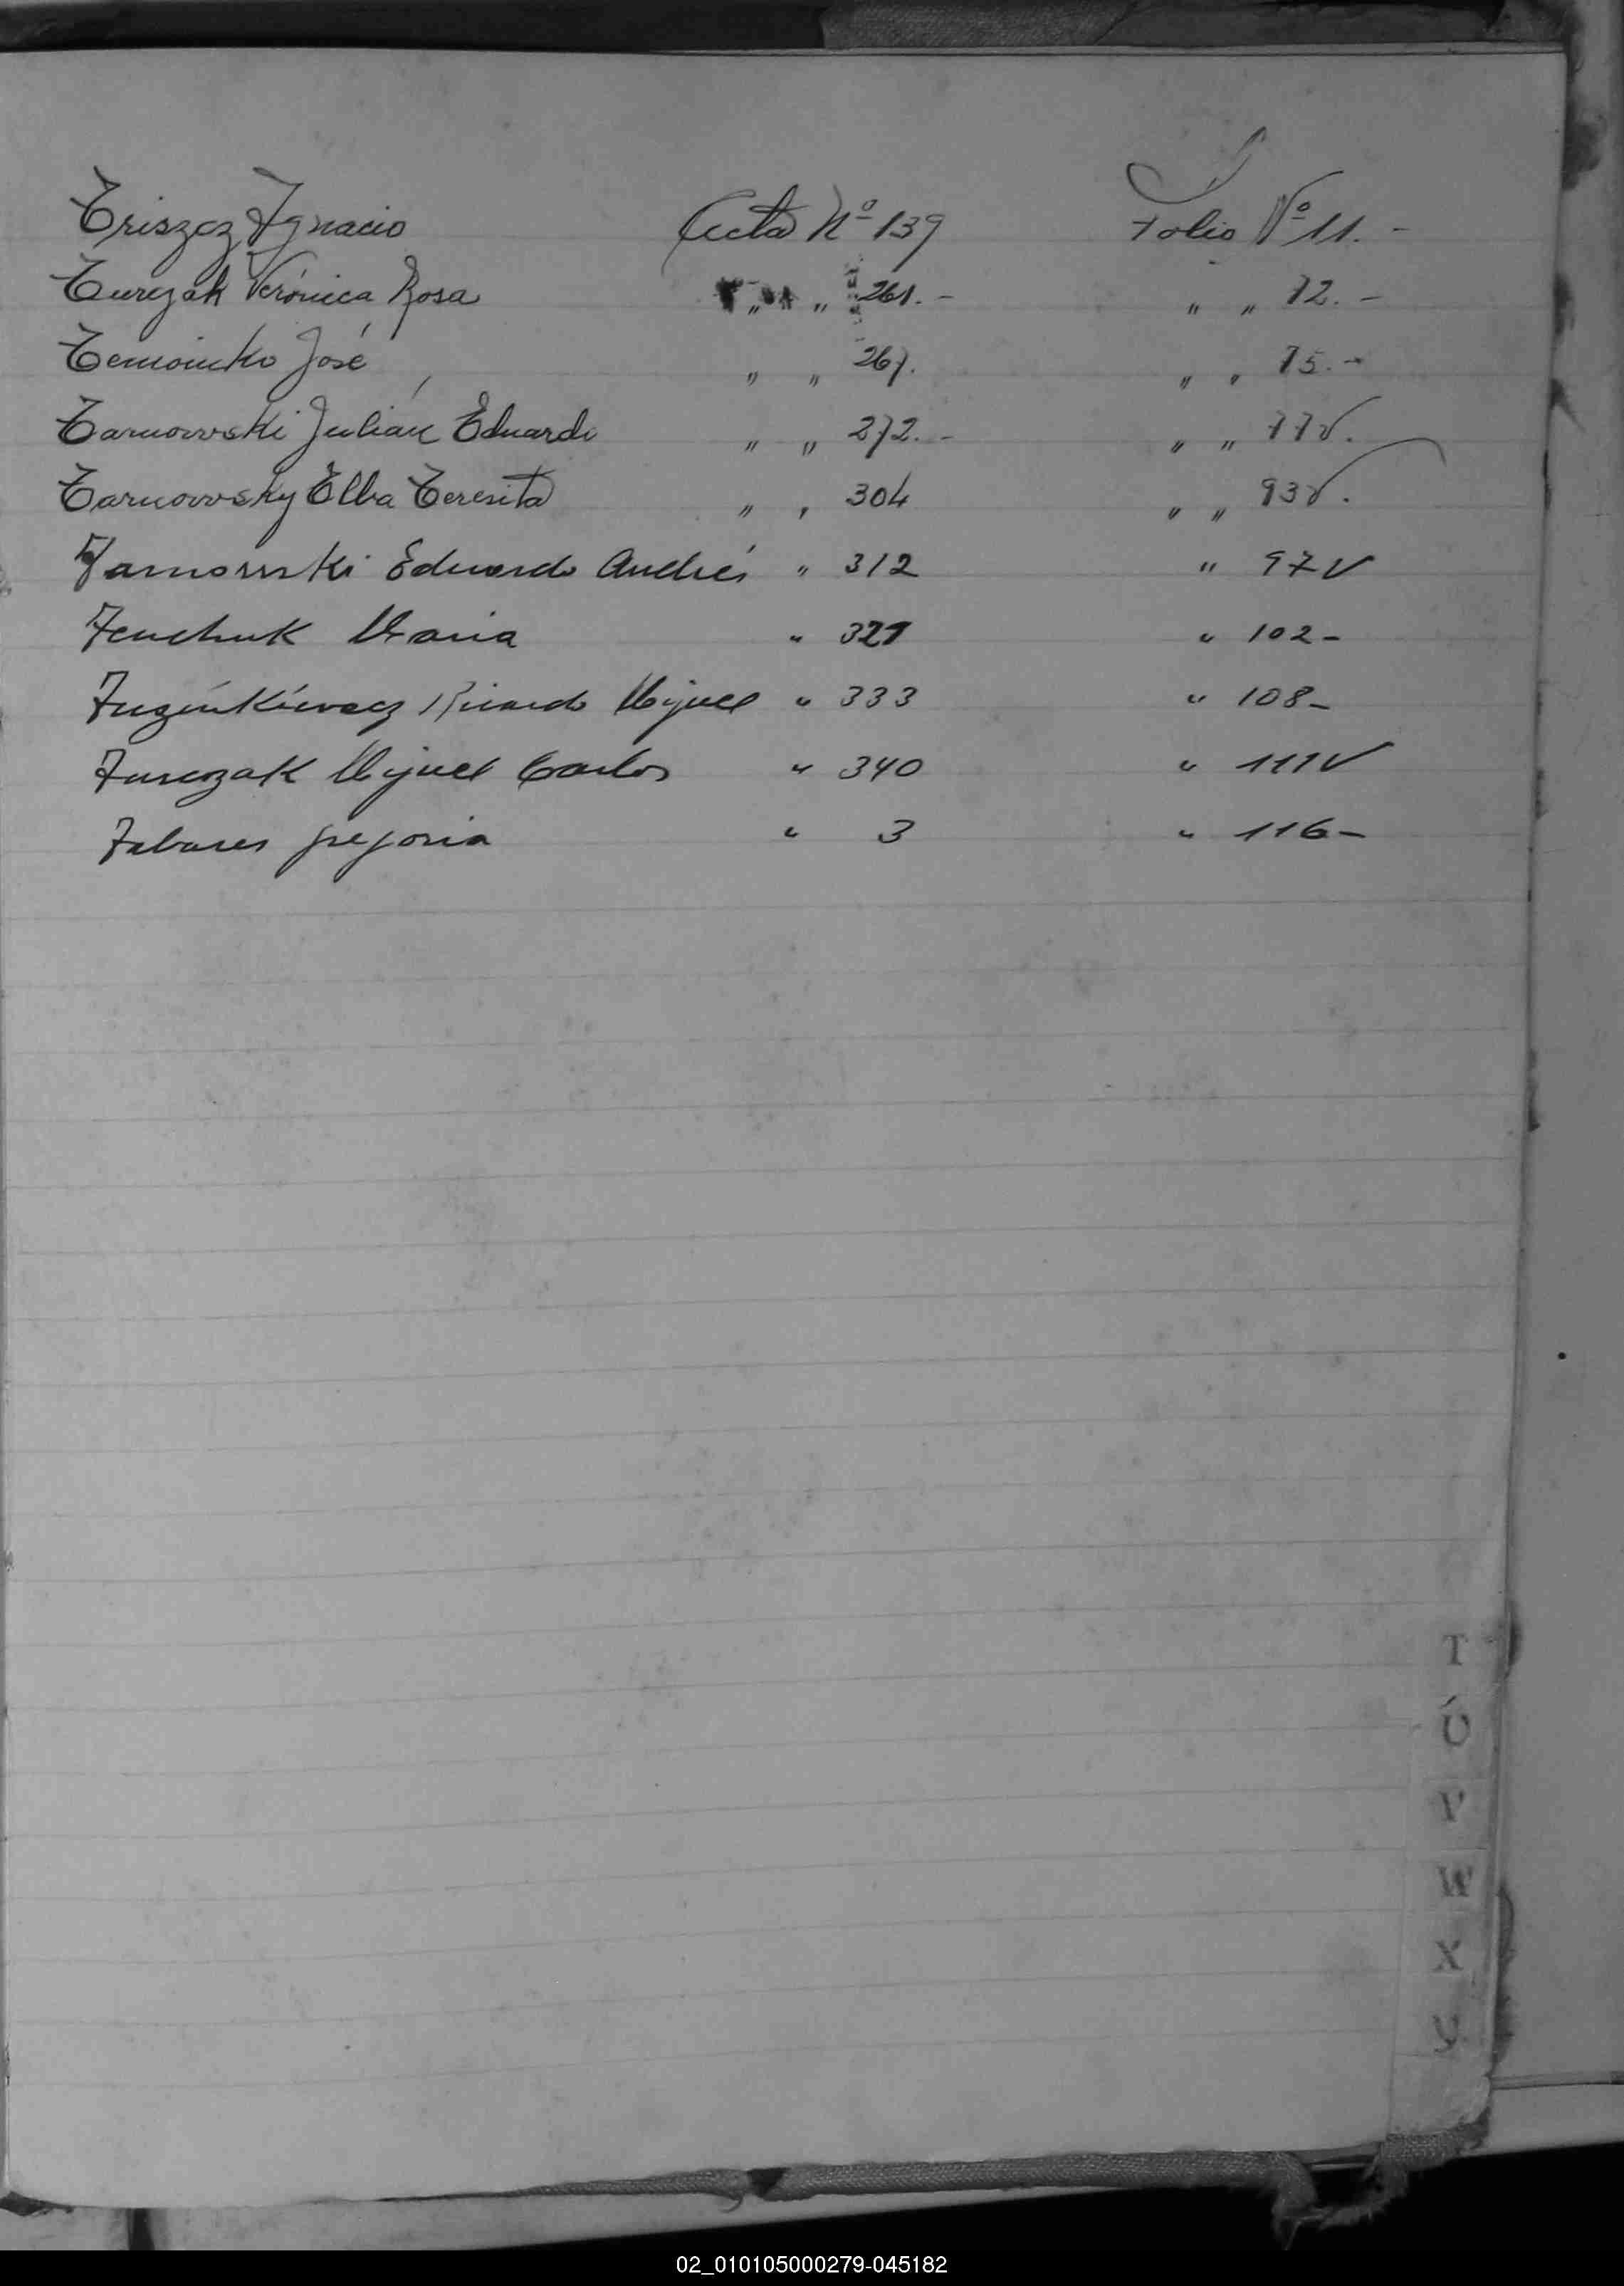 Triszcz Ignacio Acta Nº 139 Folio Nº 11.-
Turczak Verónica Rosa " " 261.- " " 72.-
José " " 267. " " 75.-
Tarnowski Julián Eduardo " " 272.- " " 77v.
Tarnowsky Elba Teresita " " 304 " " 93v.
Tarnowski Eduardo Andrés " 312 " 97v
Tenchuk Maria " 321 " 102-
Ricardo Miguel " 333 " 108-
Turczak Miguel Carlos " 340 " 111v
Tabares Gregoria " 3 " 116-
T
Ú
V
W
X
Y
02_010105000279-045182